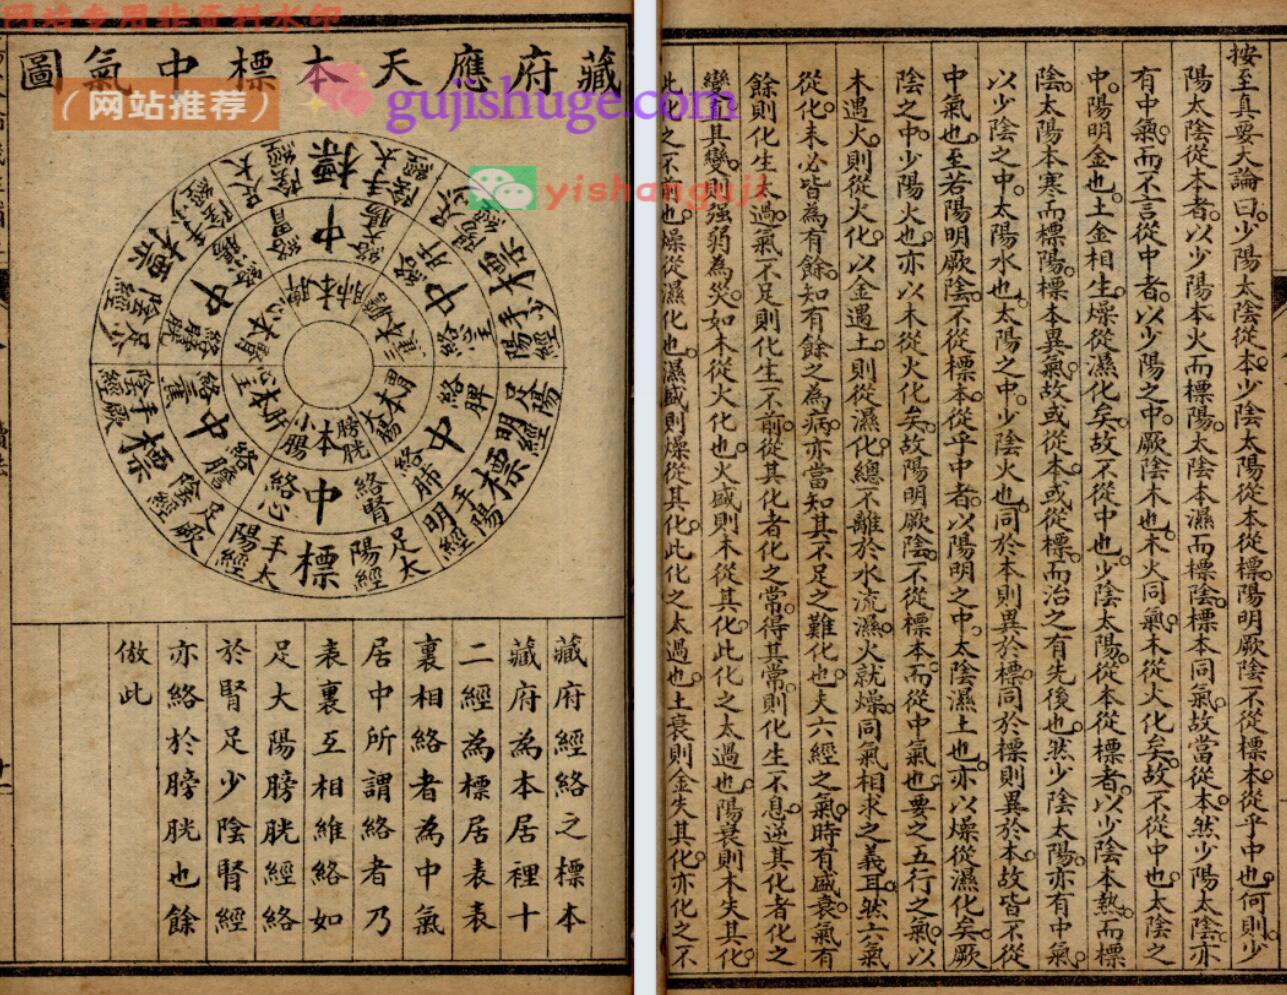 网站专用非资料水印
（网站推荐）
gujishuge.com
yishanguji
按至真要大論曰少陽太陰從本少陰太陽從本從標陽明厥陰不從標本從乎中也何則少
陽太陰從本者以少陽本火而標陽太陰本濕而標陰標本同氣故當從本然少陽太陰亦
有中氣而不言從中者以少陽之中厥陰木也木火同氣木從火化矣故不從中也太陰之
中陽明金也土金相生燥從濕化矣故不從中也少陰太陽從本從標者以少陰本熱而標
陰太陽本寒而標陽標本異氣故或從本或從標而治之有先後也然少陰太陽亦有中氣
以少陰之中太陽水也太陽之中少陰火也同於本則異於標同於標則異於本故皆不從
中氣也至若陽明厥陰不從標本從乎中者以陽明之中太陰濕土也亦以燥從濕化矣厥
陰之中少陽火也亦以木從火化矣故陽明厥陰不從標本而從中氣也要之五行之氣以
木遇火則從火化以金遇土則從濕化總不離於水流濕火就燥同氣相求之義耳然六氣
從化未必皆為有餘知有餘之為病亦當知其不足之難化也夫六經之氣時有盛衰氣有
餘則化生太過氣不足則化生不前從其化者化之常得其常則化生不息逆其化者化之
變值其變則强弱為災如木從火化也火盛則木從其化此化之太過也陽衰則木失其化
此化之不前也燥從濕化也濕盛則燥從其化此化之太過也土衰則金失其化亦化之不
藏府應天本標中氣圖
標
手太陰經
足太陰經
中
大腸絡
胃絡
本
肺
脾
標
手少陰經
足少陰經
中
小腸絡
膀胱絡
本
心
腎
標
手厥陰經
足厥陰經
中
三焦絡
膽絡
本
心主
肝
標
手太陽經
足太陽經
中
心絡
腎絡
本
小腸
膀胱
標
手陽明經
足陽明經
中
肺絡
脾絡
本
大腸
胃
標
手少陽經
足少陽經
中
肝絡
心主絡
本
膽
三焦
藏府經絡之標本
藏府為本居裡十
二經為標居表表
裏相絡者為中氣
居中所謂絡者乃
表裏互相維絡如
足太陽膀胱經絡
於腎足少陰腎經
亦絡於膀胱也餘
倣此